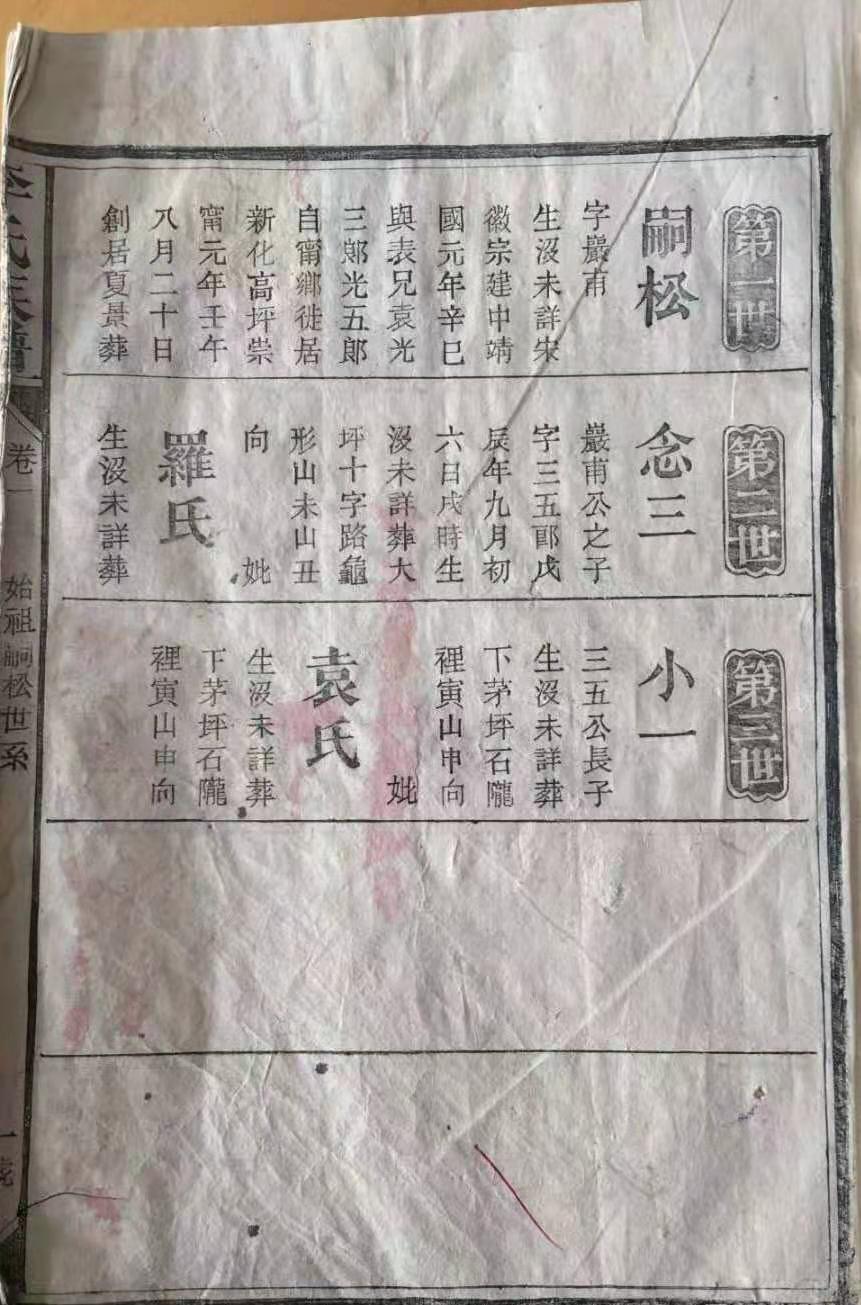 第一世
嗣松
字嚴甫
生沒未詳宋
徽宗建中靖
國元年辛巳
與表兄袁光
三郞光五郞
自甯鄉徙居
新化高坪崇
甯元年壬午
八月二十日
創居夏景葬
第二世
念三
嚴甫公之子
字三五郞戊
辰年九月初
六日戌時生
沒未詳葬大
坪十字路龜
形山未山丑
向 妣
羅氏
生沒未詳葬
第三世
小一
三五公長子
生沒未詳葬
下茅坪石隴
裡寅山申向
妣
袁氏
生沒未詳葬
下茅坪石隴
裡寅山申向
李氏族譜
卷一
始祖嗣松世系